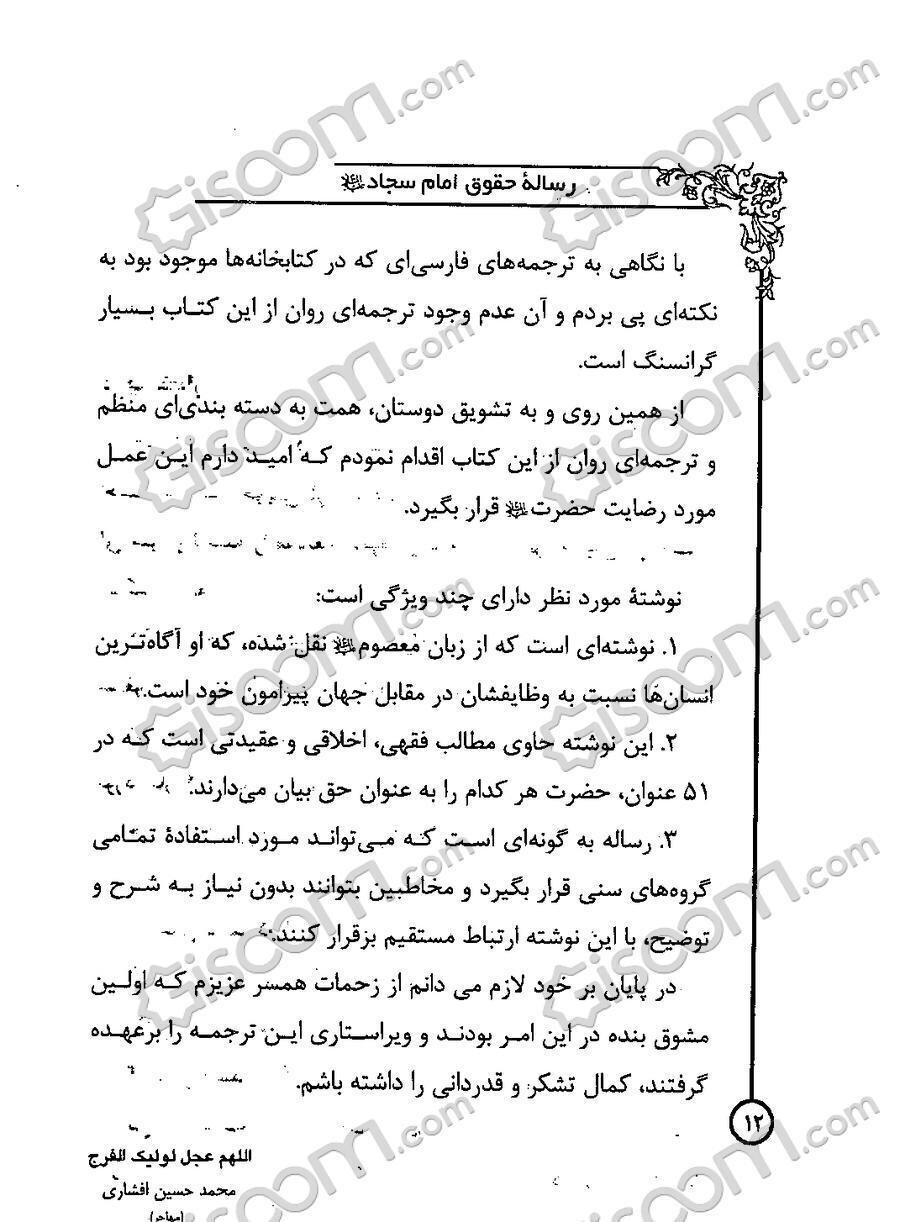 رسالهٔ حقوق امام سجاد علیه‌السلام
با نگاهی به ترجمه‌های فارسی‌ای که در کتابخانه‌ها موجود بود به
نکته‌ای پی بردم و آن عدم وجود ترجمه‌ای روان از این کتاب بسیار
گرانسنگ است.
از همین روی و به تشویق دوستان، همت به دسته بندی‌ای منظم
و ترجمه‌ای روان از این کتاب اقدام نمودم که امید دارم این عمل
مورد رضایت حضرت علیه‌السلام قرار بگیرد.
نوشتهٔ مورد نظر دارای چند ویژگی است:
۱. نوشته‌ای است که از زبان معصوم علیه‌السلام نقل شده، که او آگاه‌ترین
انسان‌ها نسبت به وظایفشان در مقابل جهان پیرامون خود است.
۲. این نوشته حاوی مطالب فقهی، اخلاقی و عقیدتی است که در
۵۱ عنوان، حضرت هر کدام را به عنوان حق بیان می‌دارند.
۳. رساله به گونه‌ای است که می‌تواند مورد استفادهٔ تمامی
گروه‌های سنی قرار بگیرد و مخاطبین بتوانند بدون نیاز به شرح و
توضیح، با این نوشته ارتباط مستقیم برقرار کنند.
در پایان بر خود لازم می دانم از زحمات همسر عزیزم که اولین
مشوق بنده در این امر بودند و ویراستاری این ترجمه را برعهده
گرفتند، کمال تشکر و قدردانی را داشته باشم.
۱۲
اللهم عجل لولیک الفرج
محمد حسین افشاری
(مهاجر)
Giscom.com